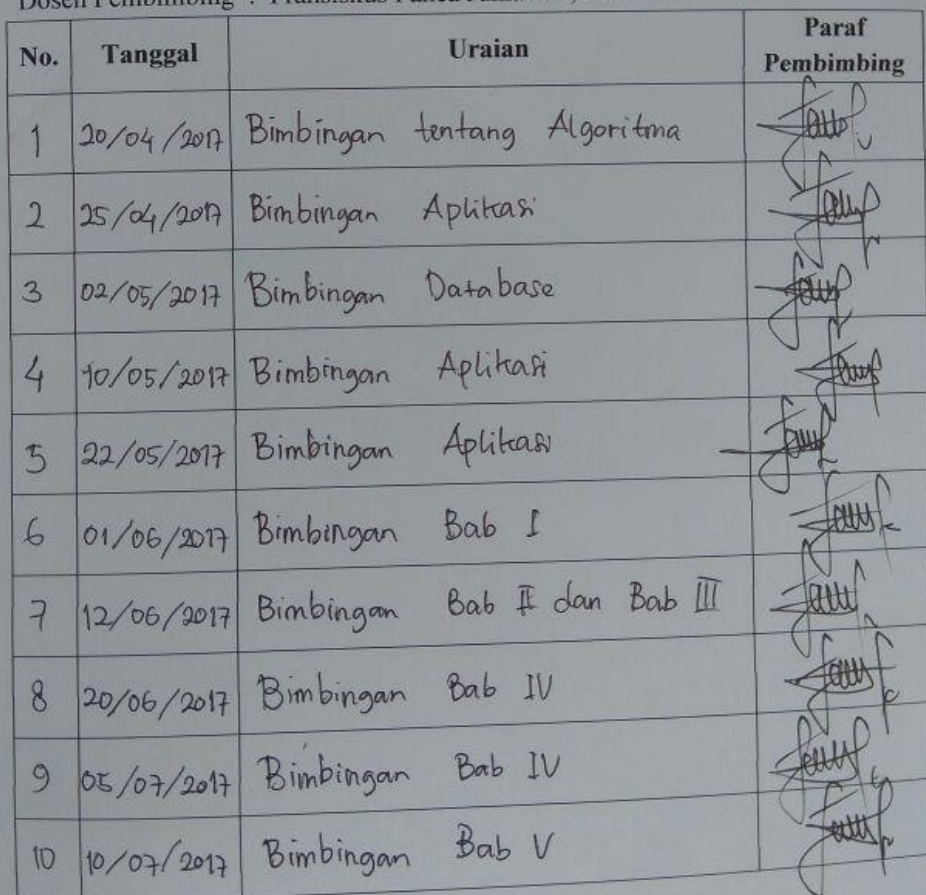 Dosen Pembimbing :
No. Tanggal Uraian Paraf Pembimbing
1 20/04/2017 Bimbingan tentang Algoritma
2 25/04/2017 Bimbingan Aplikasi
3 02/05/2017 Bimbingan Database
4 10/05/2017 Bimbingan Aplikasi
5 22/05/2017 Bimbingan Aplikasi
6 01/06/2017 Bimbingan Bab I
7 12/06/2017 Bimbingan Bab II dan Bab III
8 20/06/2017 Bimbingan Bab IV
9 05/07/2017 Bimbingan Bab IV
10 10/07/2017 Bimbingan Bab V